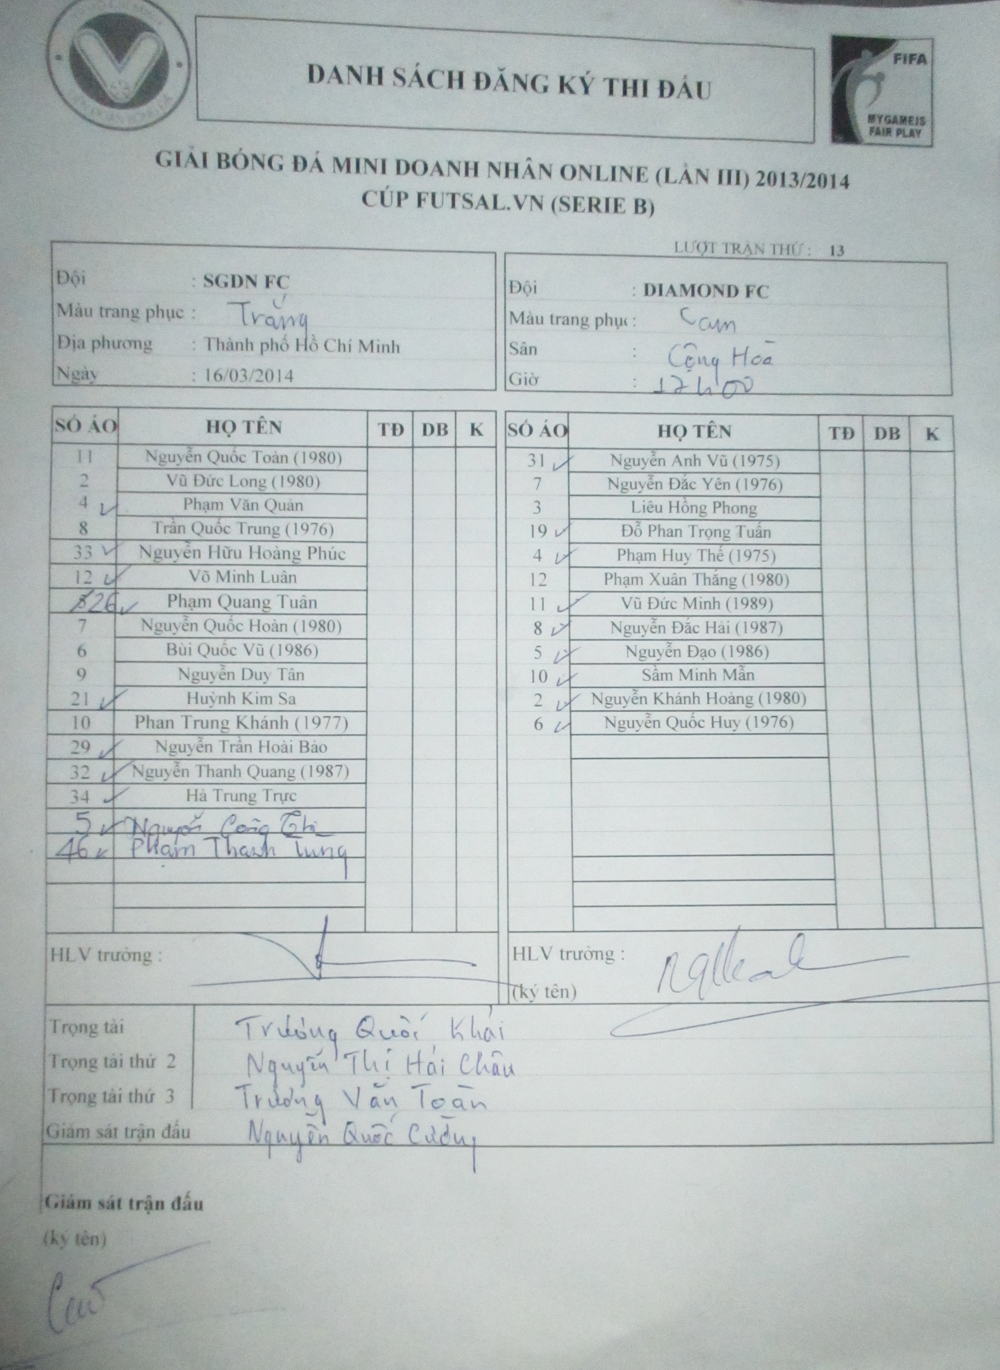 DANH SÁCH ĐĂNG KÝ THI ĐẤU
FIFA
MYGAMEIS
FAIR PLAY
GIẢI BÓNG ĐÁ MINI DOANH NHÂN ONLINE (LẦN III) 2013/2014
CÚP FUTSAL.VN (SERIE B)
LƯỢT TRẬN THỨ : 13
Đội : SGDN FC
Màu trang phục : Trắng
Địa phương : Thành phố Hồ Chí Minh
Ngày : 16/03/2014
Đội : DIAMOND FC
Màu trang phục : Cam
Sân : Cộng Hoà
Giờ : 17h00
SỐ ÁO HỌ TÊN TĐ DB K
11 Nguyễn Quốc Toàn (1980)
2 Vũ Đức Long (1980)
4 Phạm Văn Quân
8 Trần Quốc Trung (1976)
33 Nguyễn Hữu Hoàng Phúc
12 Võ Minh Luân
26 Phạm Quang Tuân
7 Nguyễn Quốc Hoàn (1980)
6 Bùi Quốc Vũ (1986)
9 Nguyễn Duy Tân
21 Huỳnh Kim Sa
10 Phan Trung Khánh (1977)
29 Nguyễn Trần Hoài Bảo
32 Nguyễn Thanh Quang (1987)
34 Hà Trung Trực
5 Nguyễn Công
46 Phạm Thanh Tùng
SỐ ÁO HỌ TÊN TĐ DB K
31 Nguyễn Anh Vũ (1975)
7 Nguyễn Đắc Yên (1976)
3 Liêu Hồng Phong
19 Đỗ Phan Trọng Tuấn
4 Phạm Huy Thế (1975)
12 Phạm Xuân Thắng (1980)
11 Vũ Đức Minh (1989)
8 Nguyễn Đắc Hải (1987)
5 Nguyễn Đạo (1986)
10 Sầm Minh Mẫn
2 Nguyễn Khánh Hoàng (1980)
6 Nguyễn Quốc Huy (1976)
HLV trưởng :
HLV trưởng :
(ký tên)
Trọng tài Trương Quốc Khải
Trọng tài thứ 2 Nguyễn Thị Hải Châu
Trọng tài thứ 3 Trương Văn Toàn
Giám sát trận đấu Nguyễn Quốc Cường
Giám sát trận đấu
(ký tên)